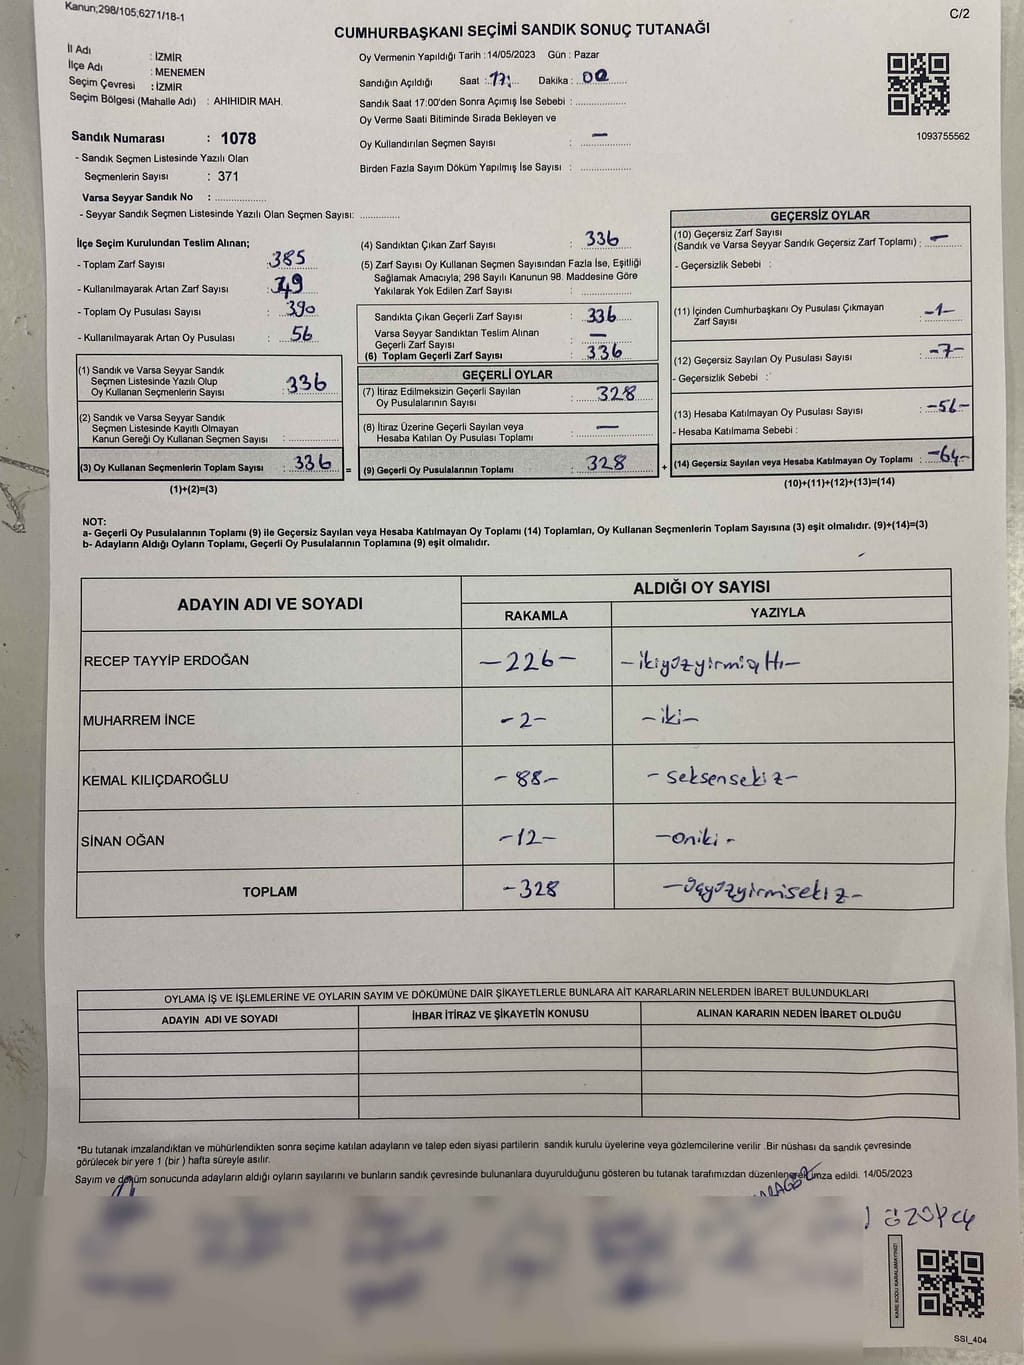 Kanun;298/105,6271/18-1
C/2
CUMHURBAŞKANI SEÇİMİ SANDIK SONUÇ TUTANAĞI
İl Adı : İZMİR
İlçe Adı : MENEMEN
Seçim Çevresi : İZMİR
Seçim Bölgesi (Mahalle Adı) : AHIHIDIR MAH.
Oy Vermenin Yapıldığı Tarih : 14/05/2023 Gün : Pazar
Sandığın Açıldığı Saat : 17: Dakika : 00
Sandık Saat 17:00'den Sonra Açımış İse Sebebi :
Oy Verme Saati Bitiminde Sırada Bekleyen ve
Oy Kullandırılan Seçmen Sayısı : —
Birden Fazla Sayım Döküm Yapılmış İse Sayısı :
1093755562
Sandık Numarası : 1078
- Sandık Seçmen Listesinde Yazılı Olan
Seçmenlerin Sayısı : 371
Varsa Seyyar Sandık No :
- Seyyar Sandık Seçmen Listesinde Yazılı Olan Seçmen Sayısı:
İlçe Seçim Kurulundan Teslim Alınan;
- Toplam Zarf Sayısı : 385
- Kullanılmayarak Artan Zarf Sayısı : 49
- Toplam Oy Pusulası Sayısı : 390
- Kullanılmayarak Artan Oy Pusulası : 56
(1) Sandık ve Varsa Seyyar Sandık
Seçmen Listesinde Yazılı Olup
Oy Kullanan Seçmenlerin Sayısı : 336
(2) Sandık ve Varsa Seyyar Sandık
Seçmen Listesinde Kayıtlı Olmayan
Kanun Gereği Oy Kullanan Seçmen Sayısı :
(3) Oy Kullanan Seçmenlerin Toplam Sayısı : 336 =
(1)+(2)=(3)
(4) Sandıktan Çıkan Zarf Sayısı : 336
(5) Zarf Sayısı Oy Kullanan Seçmen Sayısından Fazla İse, Eşitliği
Sağlamak Amacıyla; 298 Sayılı Kanunun 98. Maddesine Göre
Yakılarak Yok Edilen Zarf Sayısı :
Sandıkta Çıkan Geçerli Zarf Sayısı : 336
Varsa Seyyar Sandıktan Teslim Alınan
Geçerli Zarf Sayısı : —
(6) Toplam Geçerli Zarf Sayısı : 336
GEÇERLİ OYLAR
(7) İtiraz Edilmeksizin Geçerli Sayılan
Oy Pusulalarının Sayısı : 328
(8) İtiraz Üzerine Geçerli Sayılan veya
Hesaba Katılan Oy Pusulası Toplamı : —
(9) Geçerli Oy Pusulalarının Toplamı : 328 +
GEÇERSİZ OYLAR
(10) Geçersiz Zarf Sayısı
(Sandık ve Varsa Seyyar Sandık Geçersiz Zarf Toplamı) : —
- Geçersizlik Sebebi :
(11) İçinden Cumhurbaşkanı Oy Pusulası Çıkmayan
Zarf Sayısı : -1-
(12) Geçersiz Sayılan Oy Pusulası Sayısı : -7-
- Geçersizlik Sebebi :
(13) Hesaba Katılmayan Oy Pusulası Sayısı : -56-
- Hesaba Katılmama Sebebi :
(14) Geçersiz Sayılan veya Hesaba Katılmayan Oy Toplamı : -64-
(10)+(11)+(12)+(13)=(14)
NOT:
a- Geçerli Oy Pusulalarının Toplamı (9) ile Geçersiz Sayılan veya Hesaba Katılmayan Oy Toplamı (14) Toplamları, Oy Kullanan Seçmenlerin Toplam Sayısına (3) eşit olmalıdır. (9)+(14)=(3)
b- Adayların Aldığı Oyların Toplamı, Geçerli Oy Pusulalarının Toplamına (9) eşit olmalıdır.
ADAYIN ADI VE SOYADI
ALDIĞI OY SAYISI
RAKAMLA YAZIYLA
RECEP TAYYİP ERDOĞAN -226- -ikiyüzyirmialtı-
MUHARREM İNCE -2- -iki-
KEMAL KILIÇDAROĞLU -88- -seksensekiz-
SİNAN OĞAN -12- -oniki-
TOPLAM -328 -üçyüzyirmisekiz-
OYLAMA İŞ VE İŞLEMLERİNE VE OYLARIN SAYIM VE DÖKÜMÜNE DAİR ŞİKAYETLERLE BUNLARA AİT KARARLARIN NELERDEN İBARET BULUNDUKLARI
ADAYIN ADI VE SOYADI İHBAR İTİRAZ VE ŞİKAYETİN KONUSU ALINAN KARARIN NEDEN İBARET OLDUĞU
*Bu tutanak imzalandıktan ve mühürlendikten sonra seçime katılan adayların ve talep eden siyasi partilerin sandık kurulu üyelerine veya gözlemcilerine verilir .Bir nüshası da sandık çevresinde
görülecek bir yere 1 (bir ) hafta süreyle asılır.
Sayım ve döküm sonucunda adayların aldığı oyların sayılarını ve bunların sandık çevresinde bulunanlara duyurulduğunu gösteren bu tutanak tarafımızdan düzenlenerek imza edildi. 14/05/2023
KARE KODU KARALAMAYINIZ!
SSI_404